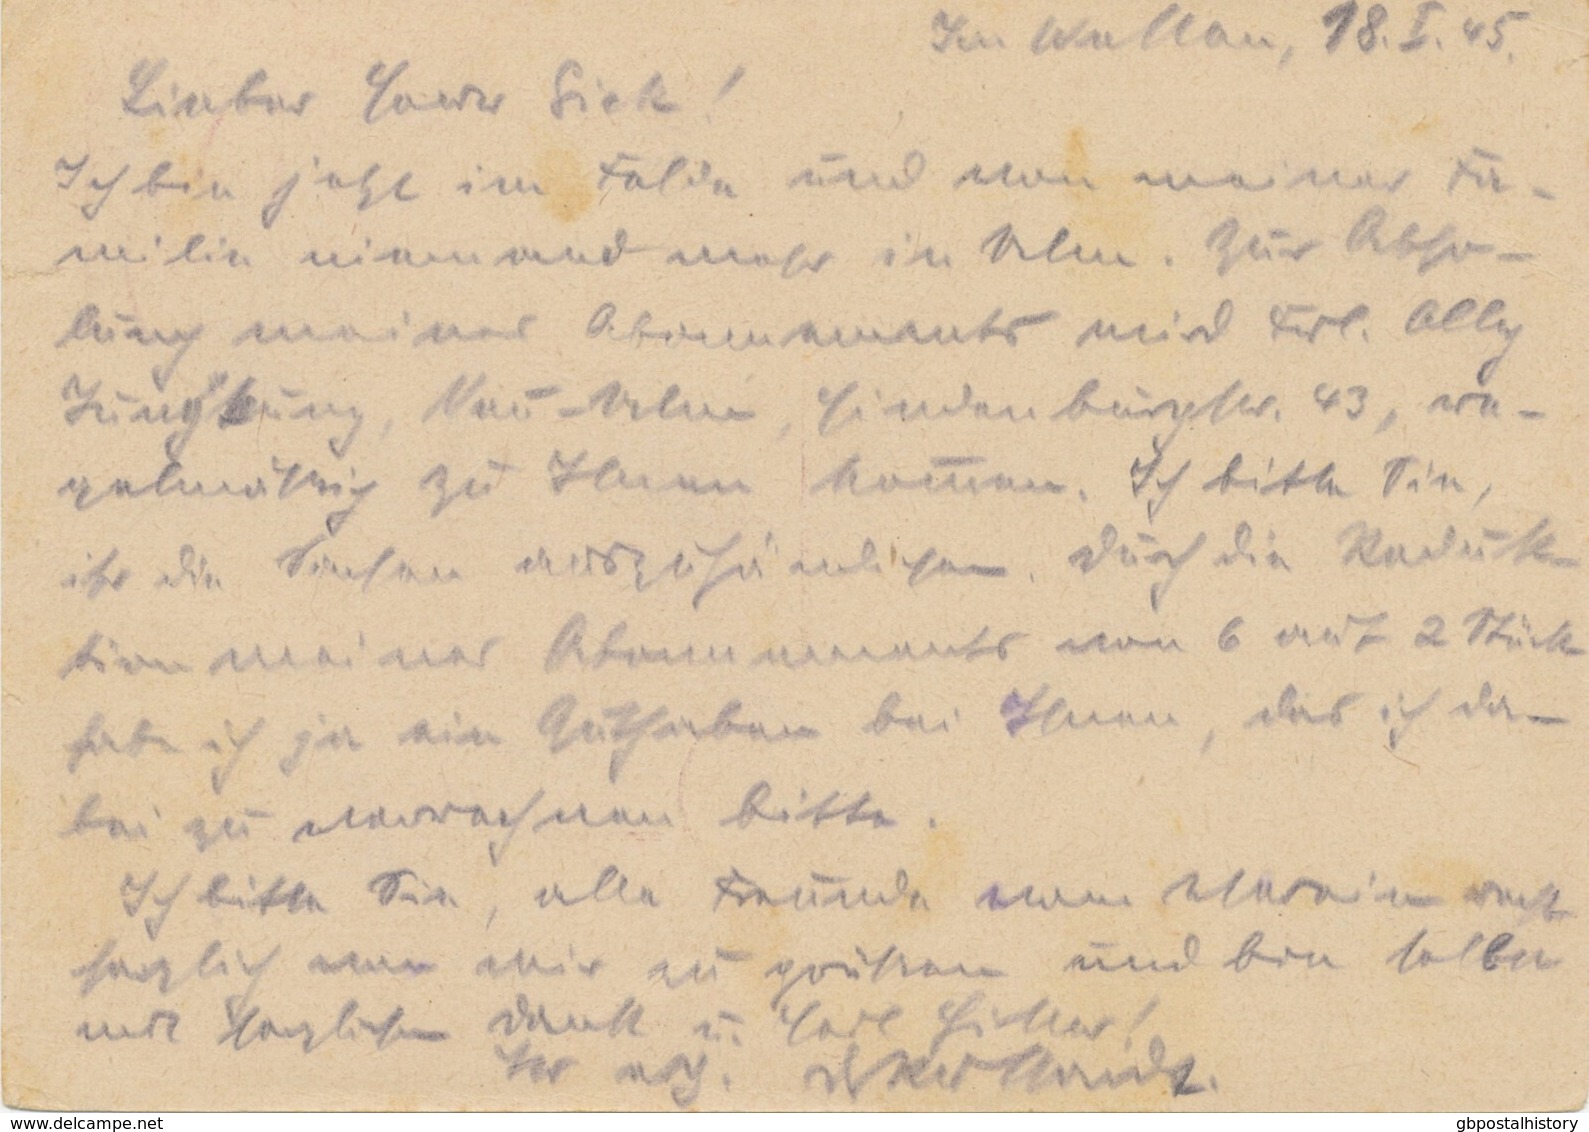 Im Wallau, 18.I.45.
Lieber Herr Sick!
Ich bin jetzt im Felde und von meiner Fa-
milie niemand mehr in Ulm. Zur Abho-
lung meines Abonnements wird Frl. Ally
Neu-Ulm, Hindenburgstr. 43, re-
gelmäßig zu Ihnen kommen. Ich bitte Sie,
ihr die Sachen auszuhändigen. Durch die Reduk-
tion meines Abonnements von 6 auf 2 Stück
habe ich ja ein Guthaben bei Ihnen, das ich da-
bei zu verrechnen bitte.
Ich bitte Sie, alle Freunde vom Verein recht
herzlich von mir zu grüßen und bin selber
mit herzlichem Dank u. Heil Hitler!
Ihr erg.
www.delcampe.net
gbpostalhistory